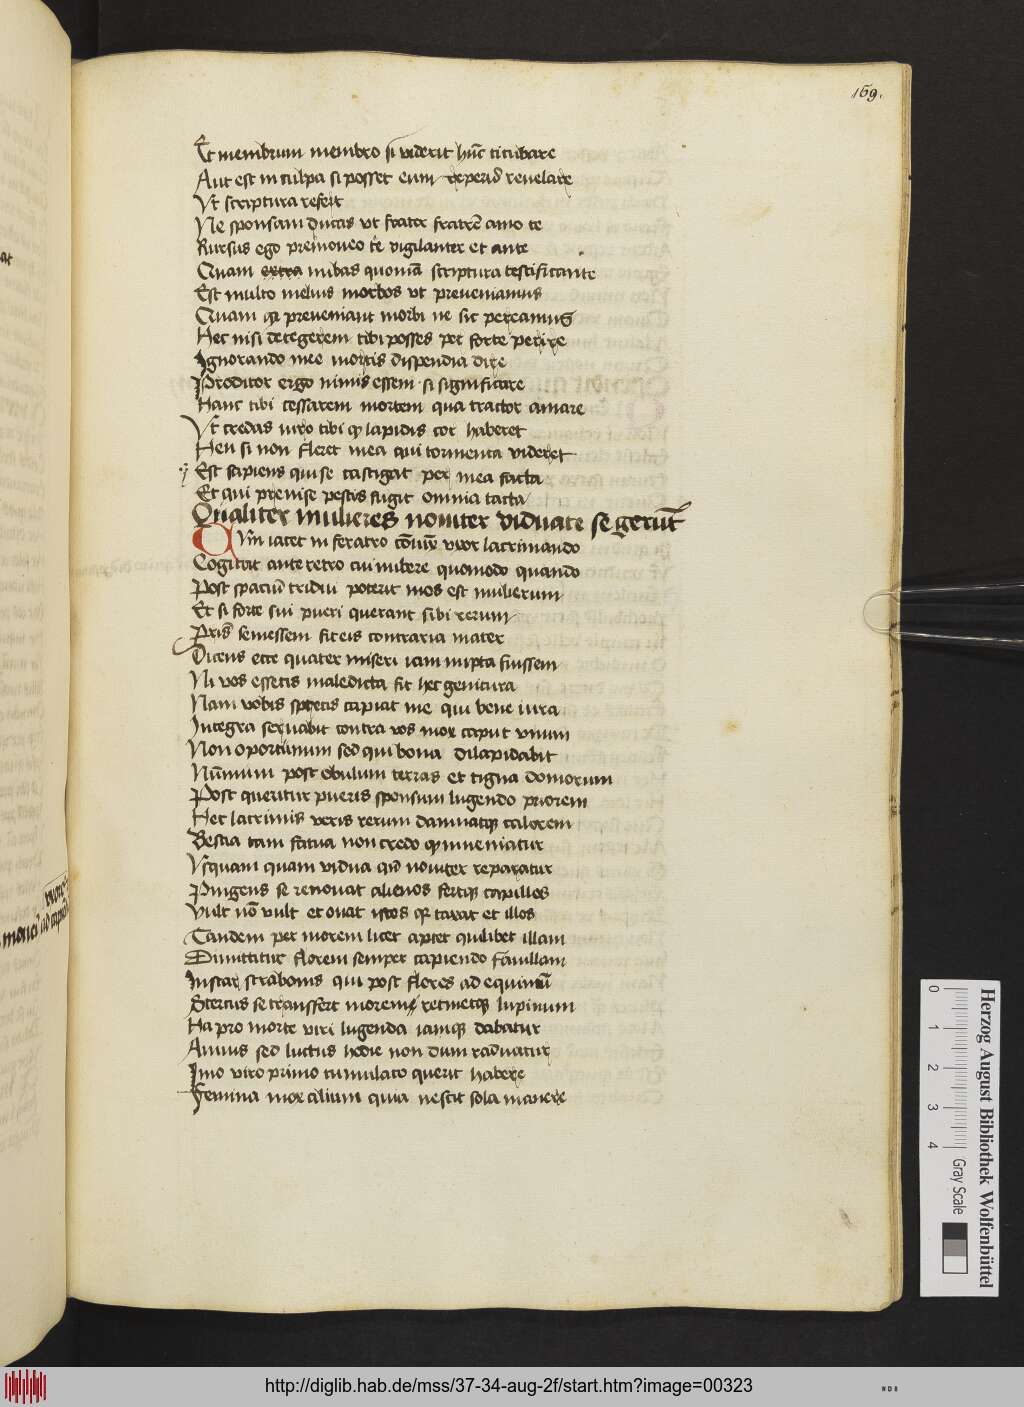 169.
Et membrum membro si viderit hūc titubare
Aut est in culpa si posset eum reperiꝺ reuelare
Vt scriptura refert
Ne sponsam ducas vt frater fratrē amo te
Rursus ego premoneo te vigilanter et ante
Quam extra nubas quoniā scriptura testificante
Est multo melius morbos vt preueniamus
Quam qꝫ preueniant morbi ne sic pereamus
Hec nisi detegerem tibi posses per forte perire
Ignorando mee mortis dispendia dire
Proditor ergo nimis essem si significare
Hanc tibi cessarem mortem qua tractor amare
Vt credas viro tibi ꝙ lapidis cor haberet
Heu si non fleret mea qui tormenta videret
Est sapiens qui se castigat per mea facta
Et qui premise pestis fugit omnia tacta
Qualiter mulieres nouiter viduate se gerūt
Cūm iacet in feratro cōiunx vxor lacrimando
Cogitat ante retro cui nubere quomodo quando
Post spaciū tridui poterit mos est mulierum
Et si forte sui pueri querant sibi rerum
Pris semessem fit eis contraria mater
Dicens ecce quater miseri iam nupta fuissem
Ni vos essetis maledicta sit hec genitura
Nam vobis spretis capiat me qui bene iura
Integra seruabit contra vos mox caput vnum
Non oportunum sed qui bona dilapidabit
Nūmum post obulum terras et tigna domorum
Post queritur pueris sponsum lugendo priorem
Hec lacrimis veris rerum damnatqꝫ calorem
Bestia tam fatua non credo ꝙ inueniatur
Vsquam quam vidua qū nouiter reparatur
Pingens se renouat alienos fertqꝫ capillos
Vult nō vult et ouat istos qꝫ taxat et illos
Tandem per morem licet aptet quilibet illam
Dimittitur florem semper capiendo fauillam
Instar scrabonis qui post flores ad equinū
Stercus se transfert morem retinetqꝫ lupinum
Ha pro morte viri lugenda iamqꝫ dabatur
Annus sed luctus hodie non dum raduatur
Imo viro primo tumulato querit habere
Femina mox alium quia nescit sola manere
Herzog August Bibliothek Wolfenbüttel
0 1 2 3 4
Gray Scale
http://diglib.hab.de/mss/37-34-aug-2f/start.htm?image=00323